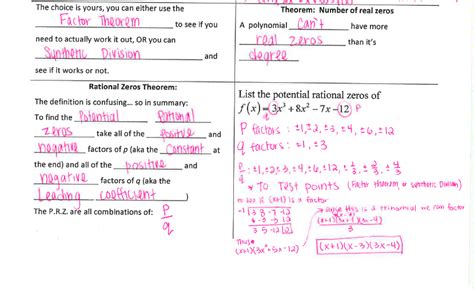 The choice is yours, you can either use the
Factor Theorem to see if you
need to actually work it out, OR you can
Synthetic Division and
see if it works or not.
Theorem: Number of real zeros
A polynomial can't have more
real zeros than it's
degree
Rational Zeros Theorem:
The definition is confusing... so in summary:
To find the Potential Rational
zeros take all of the positive and
negative factors of p (aka the constant at
the end) and all of the positive and
negative factors of q (aka the
Leading coefficient)
The P.R.Z. are all combinations of: P/q
List the potential rational zeros of
f(x) = 3x³ + 8x² − 7x − 12 P
P factors: ±1, ±2, ±3, ±4, ±6, ±12
q factors: ±1, ±3
* To Test Points (Factor theorem or synthetic Division)
-1| 3 8 -7 -12
-3 -5 12
3 5 -12 0
Thus
(x+1)(3x²+5x-12)
3